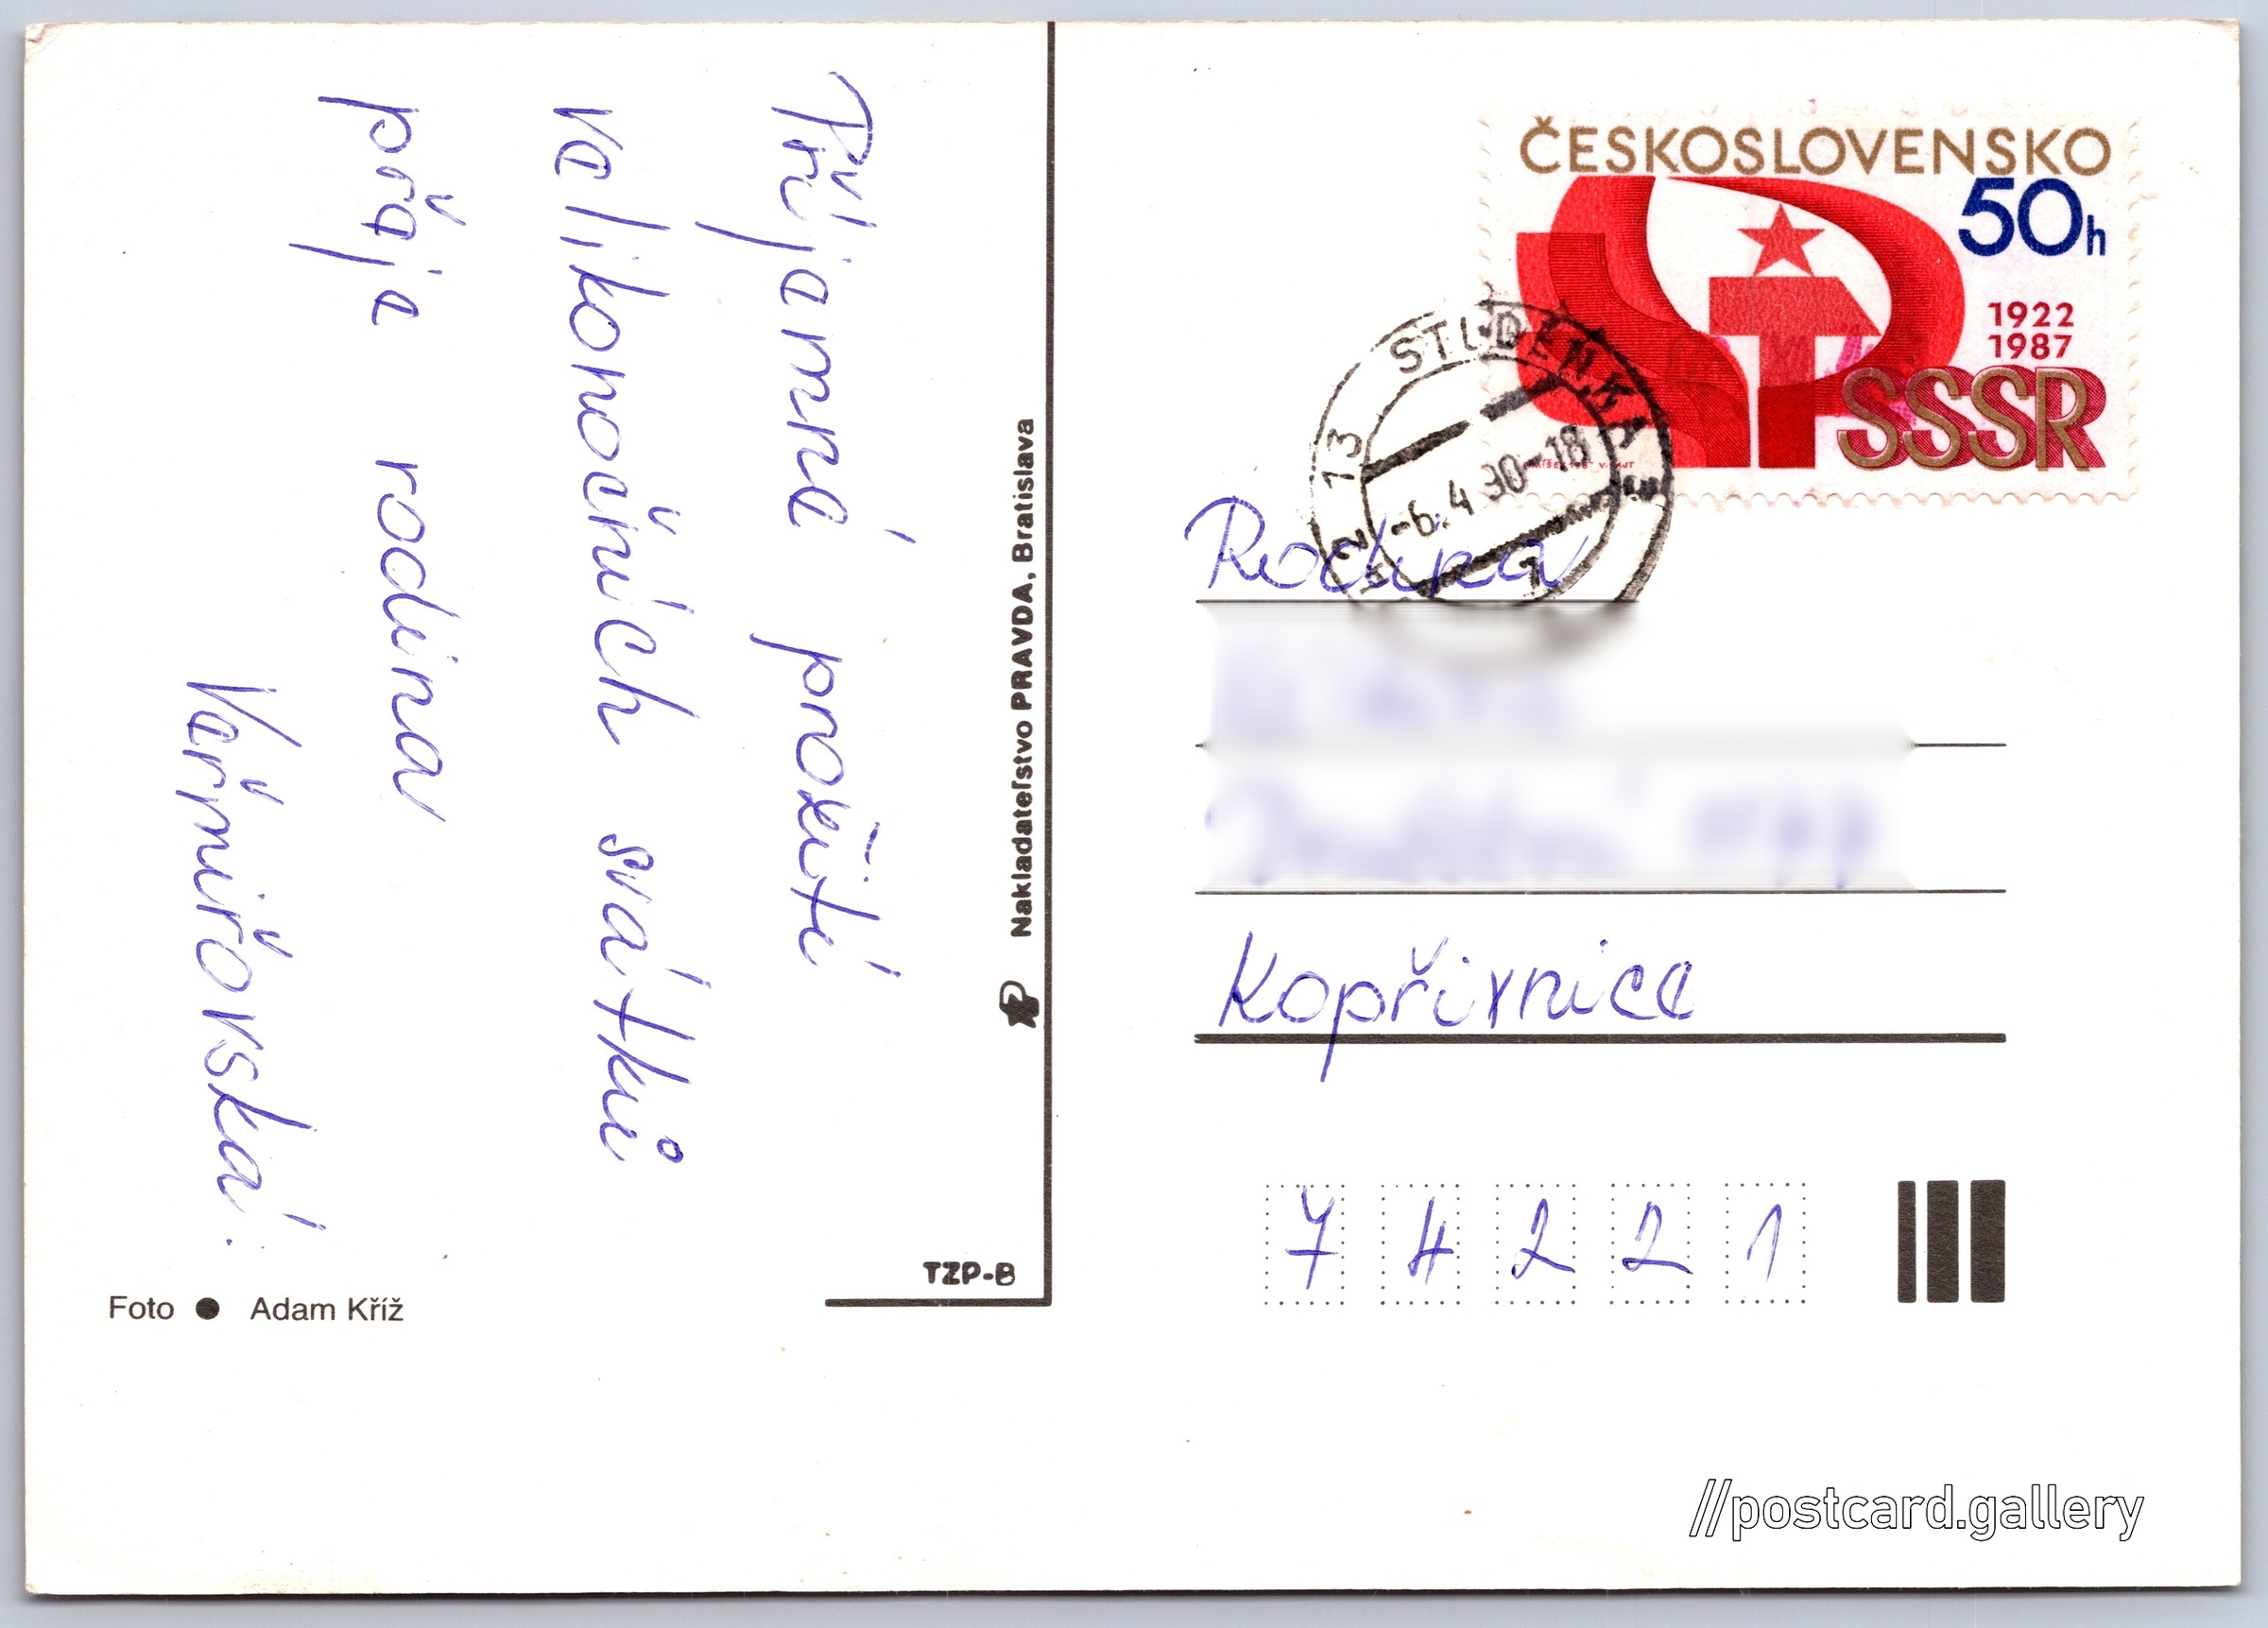 Příjemné prožití
velikonočních svátků
přeje rodina
Vařmiřovská.
Foto ● Adam Kříž
Nakladateľstvo PRAVDA, Bratislava
TZP-B
ČESKOSLOVENSKO
50h
1922
1987
SSSR
STUDÉNKA
13
-6.4.90-18
Rodina
Kopřivnice
74221
//postcard.gallery